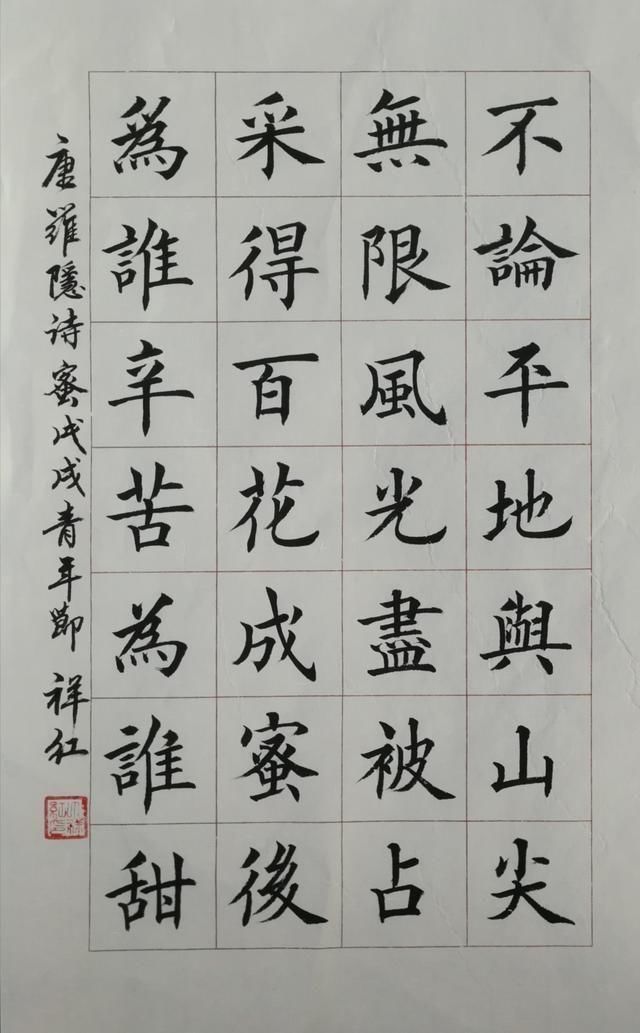 不論平地與山尖
無限風光盡被占
采得百花成蜜後
為誰辛苦為誰甜
唐羅隱诗蜜戊戌青年節 祥红